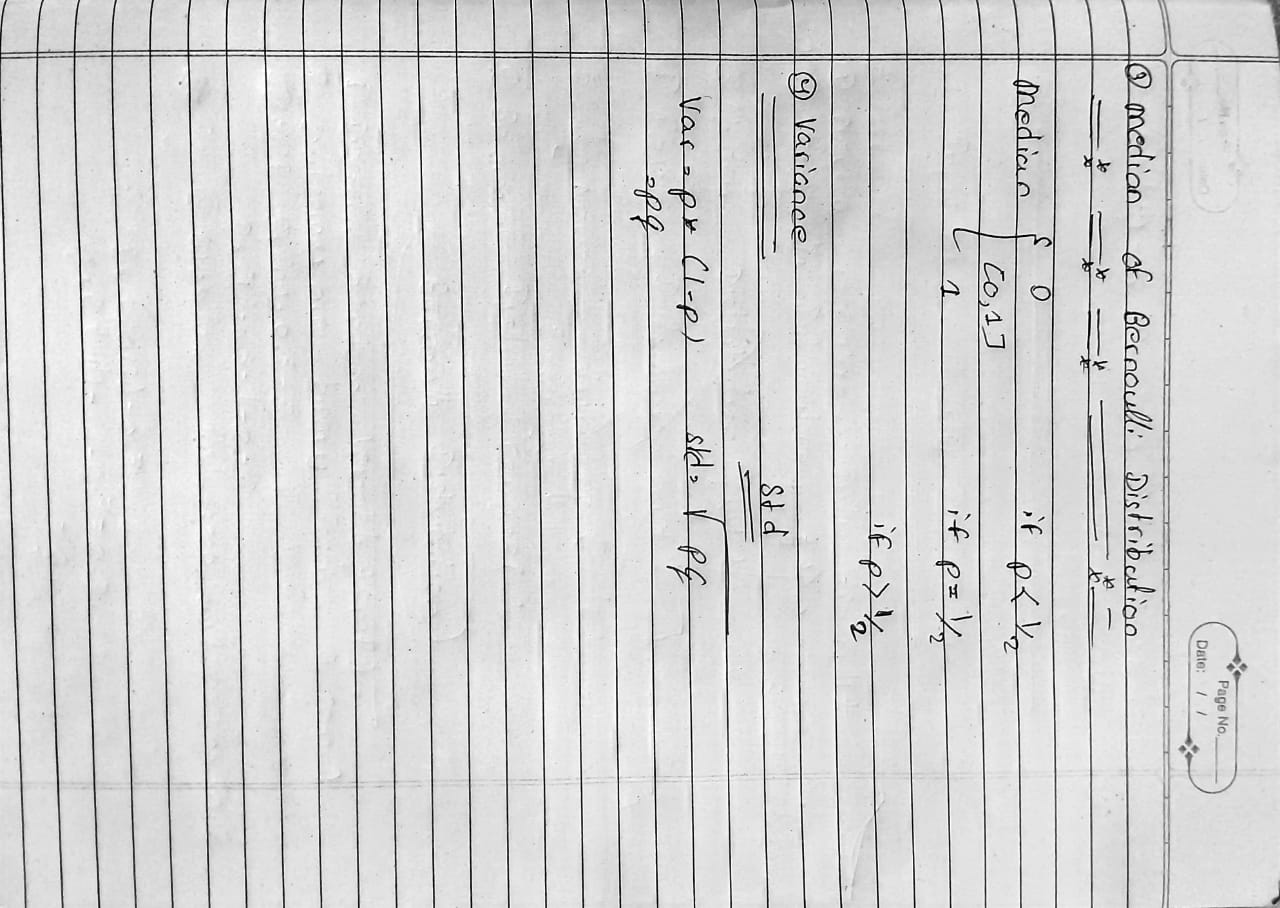 Page No.
Date: / /
③ median of Bernoulli Distribution
Median { 0 if p < 1/2
[0,1] if p = 1/2
1 if p > 1/2
④ Variance
Std
Var = p * (1-p) std = √pq
= pq